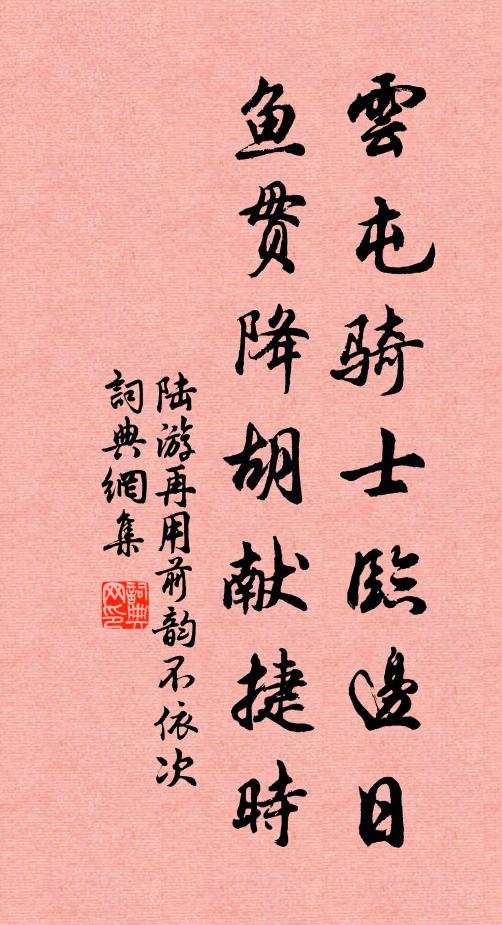 雲屯騎士臨邊日
魚貫降胡献捷時
陆游再用前韵不依次
詞典網集
詞典網印